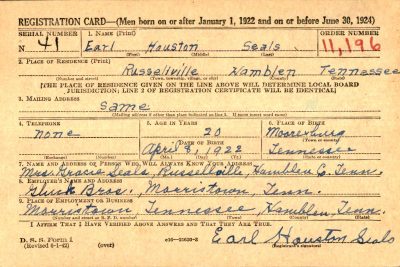 REGISTRATION CARD—(Men born on or after January 1, 1922 and on or before June 30, 1924)
SERIAL NUMBER 1. NAME (Print) ORDER NUMBER
N 41 Earl Houston Seals 11,196
(First) (Middle) (Last)
2. PLACE OF RESIDENCE (Print)
Russellville Hamblen Tennessee
(Number and street) (Town, township, village, or city) (County) (State)
[THE PLACE OF RESIDENCE GIVEN ON THE LINE ABOVE WILL DETERMINE LOCAL BOARD
JURISDICTION; LINE 2 OF REGISTRATION CERTIFICATE WILL BE IDENTICAL]
3. MAILING ADDRESS
Same
[Mailing address if other than place indicated on line 2. If same insert word same]
4. TELEPHONE 5. AGE IN YEARS 6. PLACE OF BIRTH
none 20 Mooresburg
DATE OF BIRTH (Town or county)
April 8, 1922 Tennessee
(Exchange) (Number) (Mo.) (Day) (Yr.) (State or country)
7. NAME AND ADDRESS OF PERSON WHO WILL ALWAYS KNOW YOUR ADDRESS
Mrs. Gracie Seals, Russellville, Hamblen Co. Tenn.
8. EMPLOYER'S NAME AND ADDRESS
Gluck Bros. Morristown, Tenn.
9. PLACE OF EMPLOYMENT OR BUSINESS
Morristown, Tennessee, Hamblen, Tenn.
(Number and street or R. F. D. number) (Town) (County) (State)
I AFFIRM THAT I HAVE VERIFIED ABOVE ANSWERS AND THAT THEY ARE TRUE.
D. S. S. Form 1
(Revised 6-1-42) (over) Earl Houston Seals
(Registrant's signature)